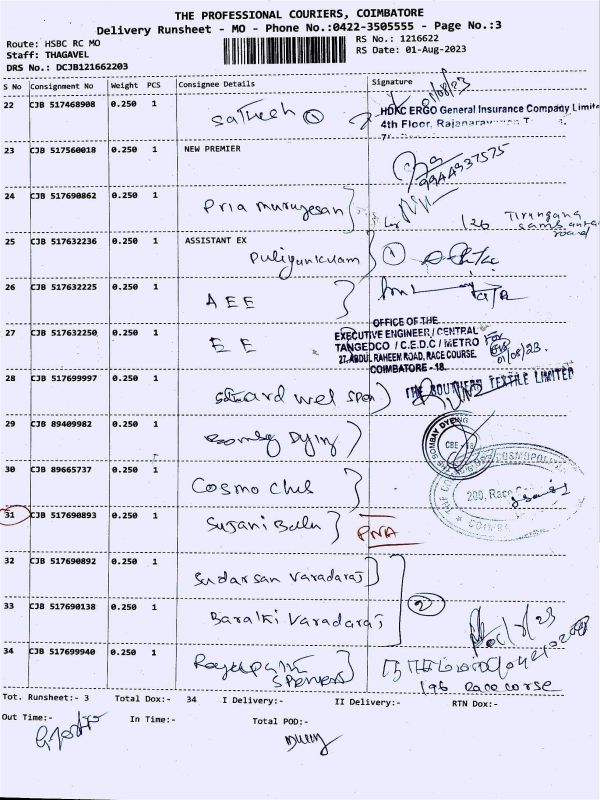 THE PROFESSIONAL COURIERS, COIMBATORE
Delivery Runsheet - MO - Phone No.:0422-3505555 - Page No.:3
Route: HSBC RC MO
Staff: THAGAVEL
DRS No.: DCJB121662203
RS No.: 1216622
RS Date: 01-Aug-2023
S No Consignment No Weight PCS Consignee Details Signature
22 CJB 517468908 0.250 1 Satheesh 1
01/08/23
HDFC ERGO General Insurance Company Limite
4th Floor, Rajanarayanan T
23 CJB 517560018 0.250 1 NEW PREMIER
9944937575
24 CJB 517690862 0.250 1 Pria Murugesan
126
25 CJB 517632236 0.250 1 ASSISTANT EX
Puliyankulam
1
26 CJB 517632225 0.250 1 AEE
27 CJB 517632250 0.250 1 EE
OFFICE OF THE
EXECUTIVE ENGINEER/CENTRAL
TANGEDCO / C.E.D.C / METRO
27, ABDUL RAHEEM ROAD, RACE COURSE.
COIMBATORE - 18.
01/08/23.
28 CJB 517699997 0.250 1
THE SOUTHERN TEXTILE LIMITED
29 CJB 89409982 0.250 1 Bombay Dying
THE BOMBAY DYEING
CBE - 18
30 CJB 89665737 0.250 1 Cosmo Club
COSMOPOLIT
200, Race Co
COIMBA
31 CJB 517690893 0.250 1 Sujani Balu
PNA
32 CJB 517690892 0.250 1 Sudarsan Varadaraj
33 CJB 517690138 0.250 1 Baralki Varadaraj
2
34 CJB 517699940 0.250 1
196 race corse
Tot. Runsheet:- 3 Total Dox:- 34 I Delivery:- II Delivery:- RTN Dox:-
Out Time:- In Time:- Total POD:-